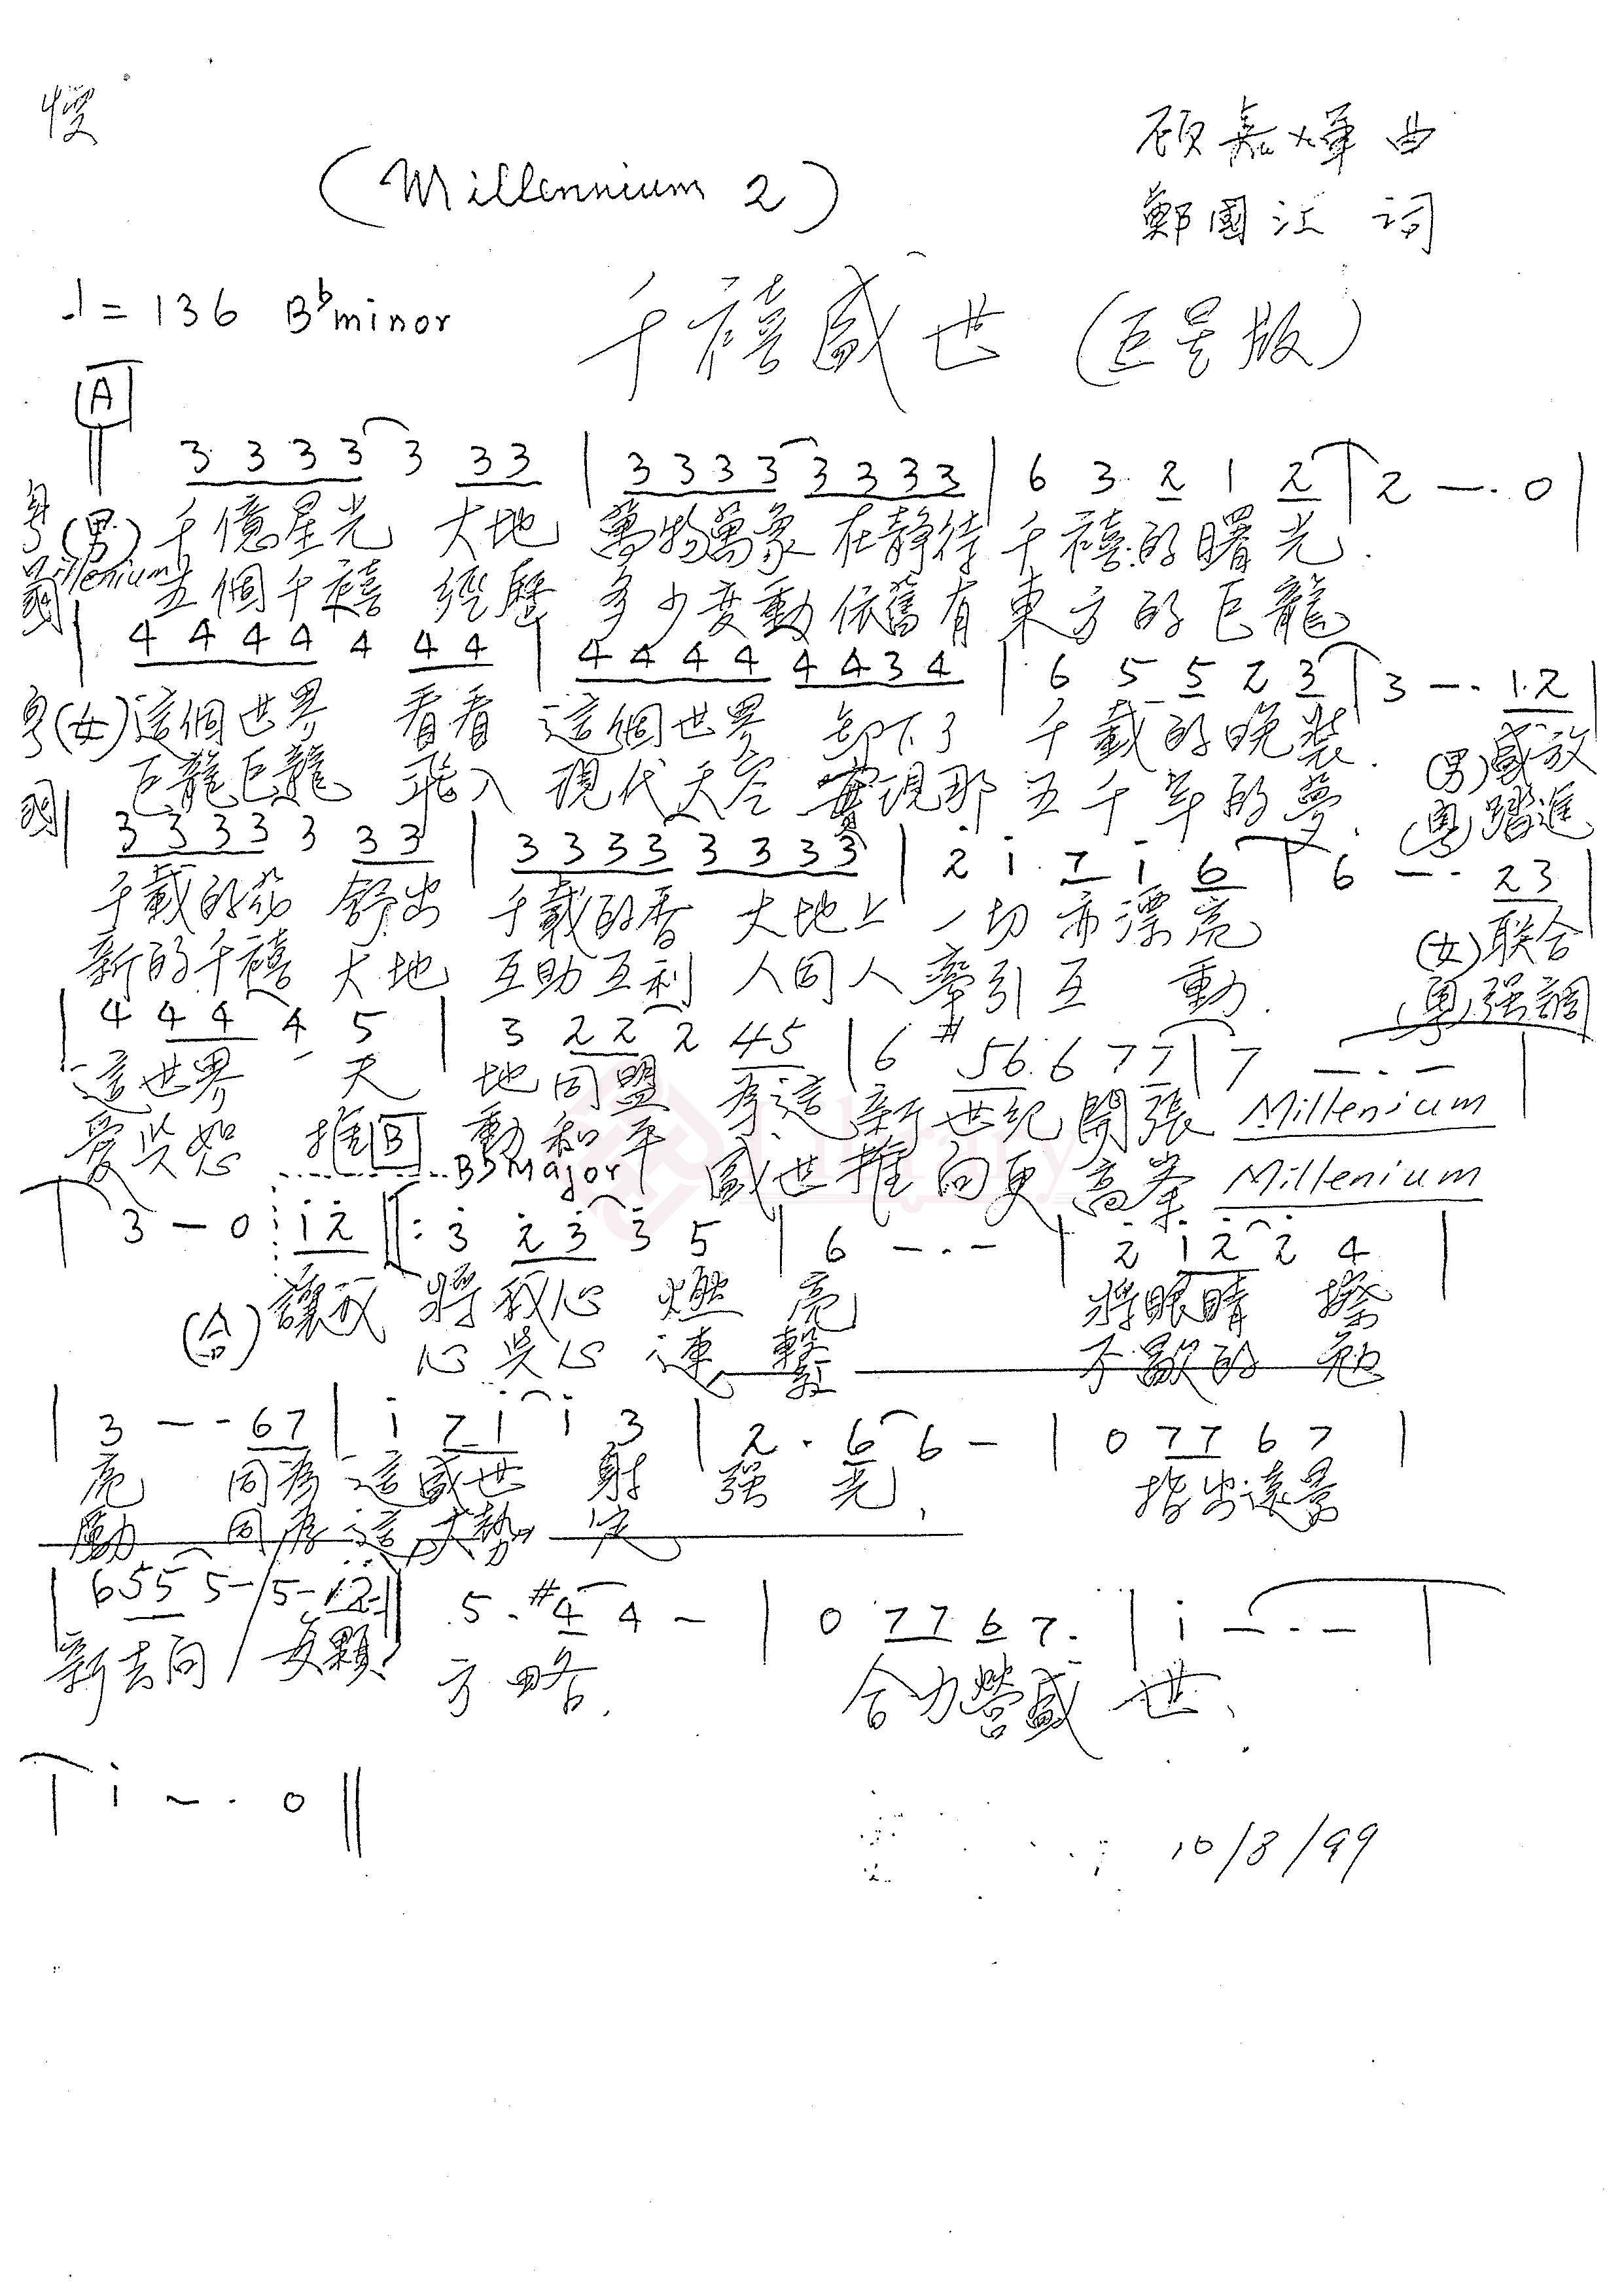 慢
顧嘉煇 曲
(Millennium 2)
鄭國江 詞
♩=136 B♭minor
千禧盛世(巨星版)
A
3 3 3 3 3 3 3 | 3 3 3 3 3 3 3 3 | 6 3 · 2 1 2 | 2 — · 0 |
粵(男)千億星光 大地 萬物萬象 在靜待 千禧的曙光.
國 五個千禧 經歷 多少變動 依舊有 東方的巨龍
| 4 4 4 4 4 4 4 | 4 4 4 4 4 4 3 4 | 6 5 5 2 3 | 3 — · 1 2 |
粵(女)這個世界 看看 這個世界 卸下了 千載的晚裝. (男)盛放
國 巨龍巨龍 飛入 現代天空 實現那 五千年的夢. (粵)踏進
| 3 3 3 3 3 3 3 | 3 3 3 3 3 3 3 3 | 2 i · 7 i 6 | 6 — · 2 3 |
千載的花 舒出 千載的香 大地上 一切亦漂亮 (女)联合
新的千禧 大地 互助互利 人同人 牽引互 動. (粵)强調
| 4 4 4 4 5 | 3 2 2 2 4 5 | 6 #5 6 · 6 7 7 | 7 — · — |
這世界 天 地同盟 為這新世紀開張 Millenium
愛与恕 推 動和平 盛世推向更高峯 Millenium
B B♭Major
3 — 0 i 2 ‖: 3 2 3 3 5 | 6 — · — | 2 i 2 2 4 |
(合)讓我 將我心 燃 亮 將眼睛 擦
心与心 連 繫 不歇的 勉
| 3 — - 6 7 | i 7 i i 3 | 2 · 6 6 — | 0 7 7 6 7 |
亮 同為這盛世 射 强 光, 指出遠景
勵 同為這大勢 定
| 6 5 5 5 — / 5 - i 2 :‖ 5 · #4 4 — | 0 7 7 6 7 · | i — · — |
新去向 / 每顆 方 略. 合力營盛 世、
i — · 0 ‖
10/8/99